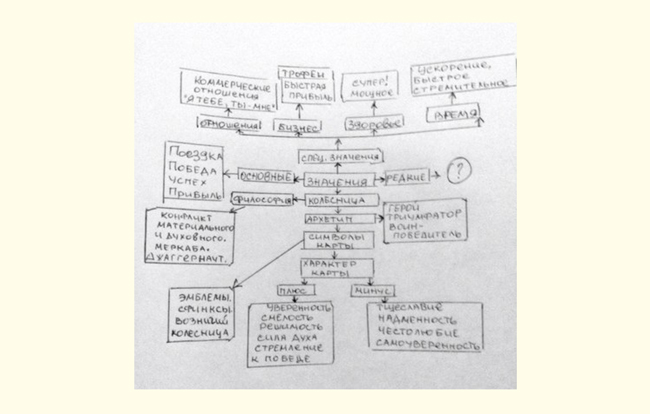 КОММЕРЧЕСКИЕ
ОТНОШЕНИЯ
"Я ТЕБЕ, ТЫ - МНЕ"
ТРОФЕИ
БЫСТРАЯ
ПРИБЫЛЬ
СУПЕР!
МОЩНОЕ
УСКОРЕНИЕ,
БЫСТРОЕ
СТРЕМИТЕЛЬНОЕ
ОТНОШЕНИЯ
БИЗНЕС
ЗДОРОВЬЕ
ВРЕМЯ
СПЕЦ. ЗНАЧЕНИЯ
ПОЕЗДКА
ПОБЕДА
УСПЕХ
ПРИБЫЛЬ
ОСНОВНЫЕ
ЗНАЧЕНИЯ
РЕДКИЕ
?
ФИЛОСОФИЯ
КОЛЕСНИЦА
АРХЕТИП
ГЕРОЙ
ТРИУМФАТОР
ВОИН-
ПОБЕДИТЕЛЬ
КОНФЛИКТ
МАТЕРИАЛЬНОГО
И ДУХОВНОГО.
МЕРКАБА.
ДЖАГГЕРНАУТ.
СИМВОЛЫ
КАРТЫ
ХАРАКТЕР
КАРТЫ
ПЛЮС
МИНУС
ЭМБЛЕМЫ.
СФИНКСЫ
ВОЗНИЧИЙ
КОЛЕСНИЦА
УВЕРЕННОСТЬ
СМЕЛОСТЬ
РЕШИМОСТЬ
СИЛА ДУХА
СТРЕМЛЕНИЕ
К ПОБЕДЕ
ТЩЕСЛАВИЕ
НАДМЕННОСТЬ
ЧЕСТОЛЮБИЕ
САМОУВЕРЕННОСТЬ